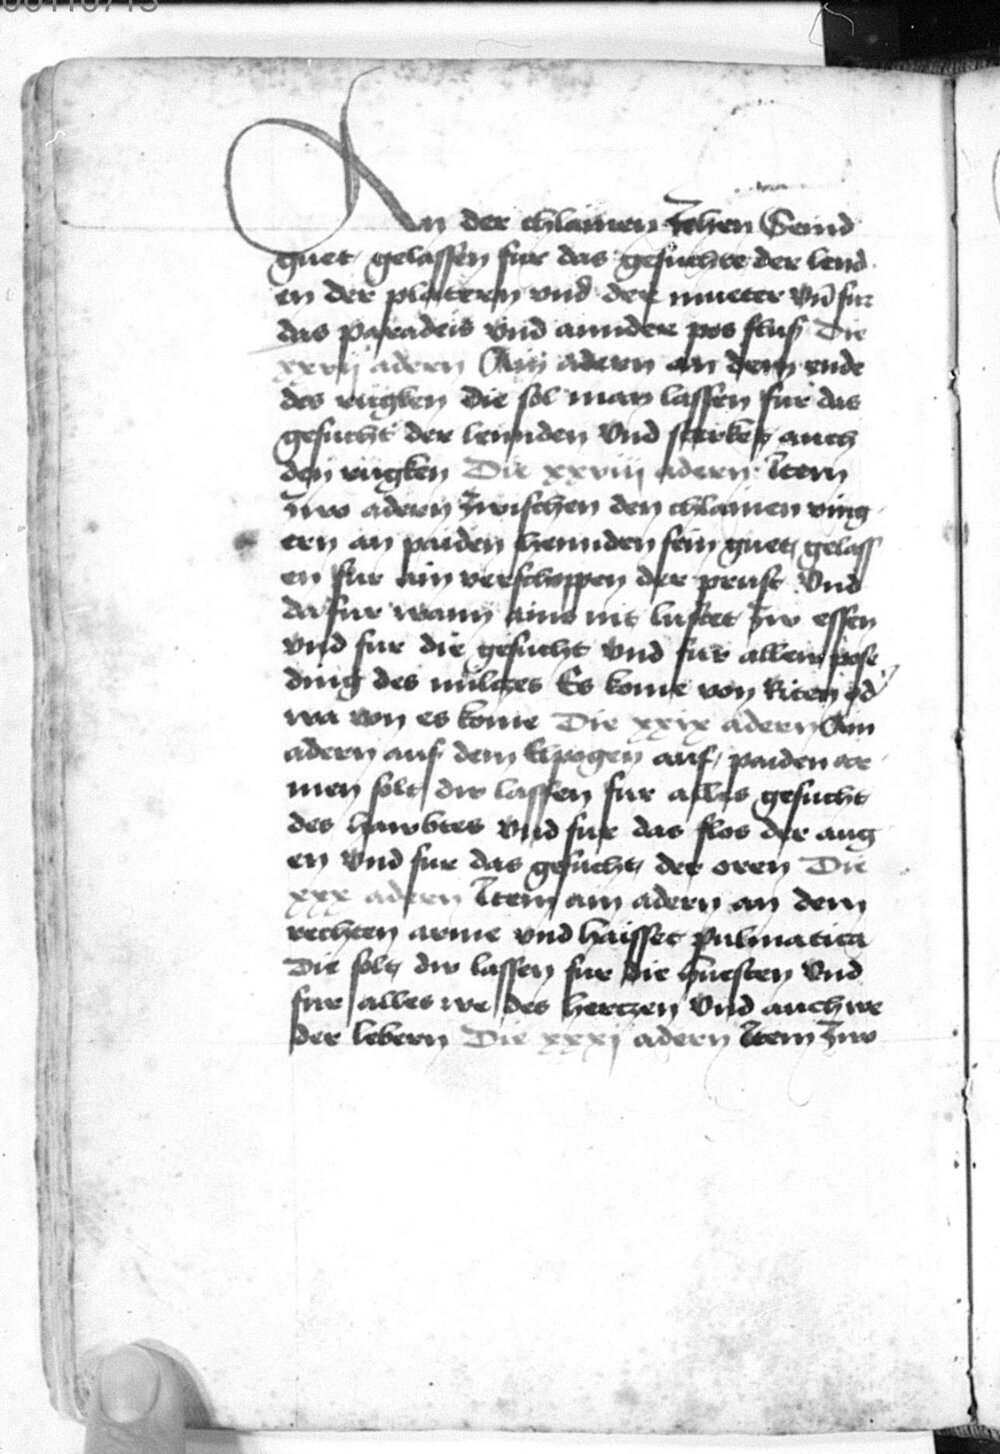 An der chlainen zehen Seind
guet gelassen fur das gesuchte der lend
en der platern vnd der mueter vnd fur
das paradeis vnd annder pos flus Die
xxvij adern Ain adern an dem ende
des rugken die sol man lassen fur das
gesucht der lennden Vnd sterket auch
den rugken Die xxviij adern Item
Zwo adern zwischen den chlainen ving
ern an paiden hennden sein guet gelass
en fur ain verschoppen der prust Vnd
dafur wann ains nit lustet zw essen
vnd fur die gesucht Vnd fur allew pose
ding des miltzes Es kome von Riten od
wa von es kome Die xxix adern Ain
adern auf dem Elpogen auf paiden ar
men solt dw lassen fur alles gesucht
des hawbtes Vnd fur das flos der aug
en Vnd fur das gesucht der oren Die
xxx adern Item ain adern an dem
rechten arme vnd haisset pulmatica
Die solt dw lassen fur die huesten Vnd
fur alles we des hertzen Vnd auch we
der lebern Die xxxj adern Item Zwo